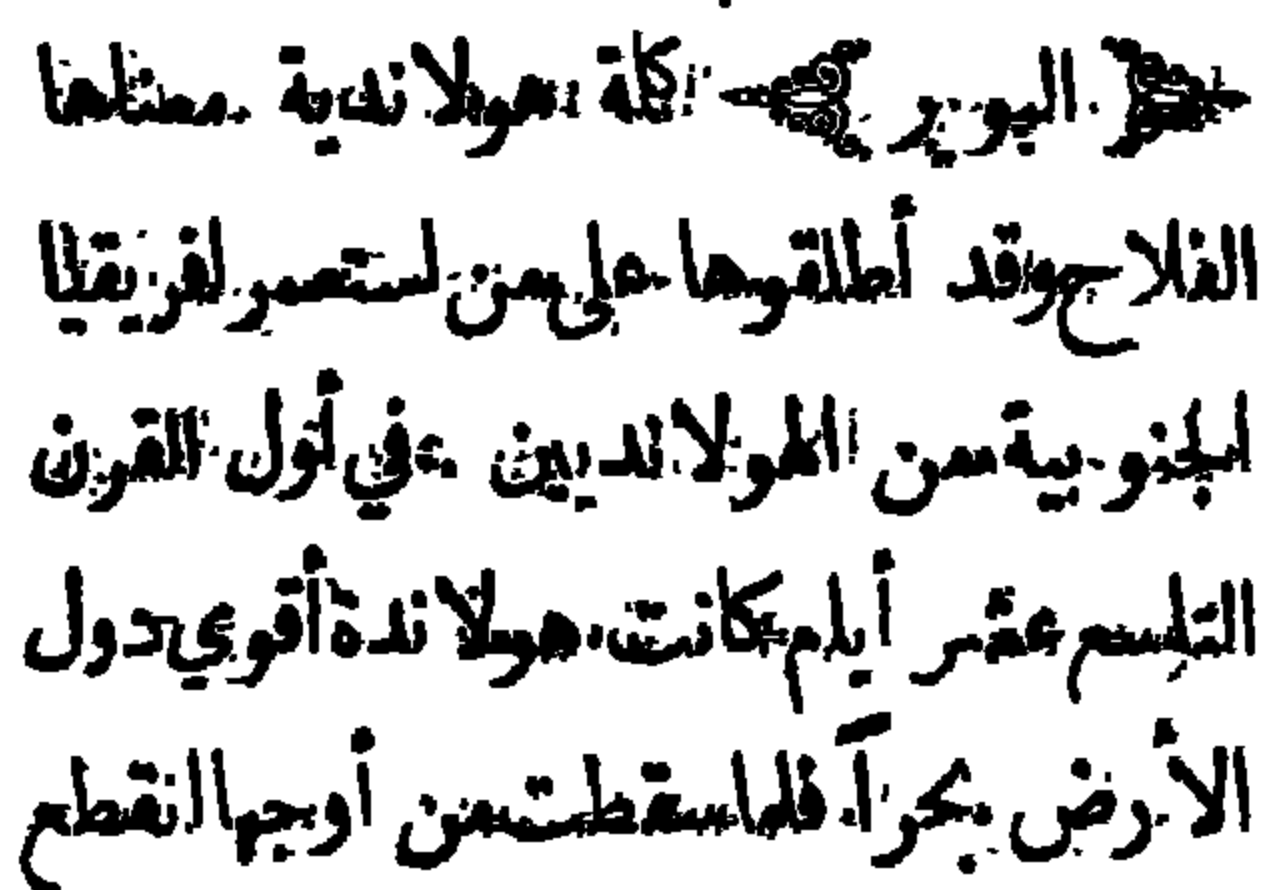 ﴿ البوير ﴾ كلمة هولاندية معناها
الفلاح وقد أطلقوها على من استعمر افريقيا
الجنوبية من الهولانديين في أول القرن
التاسع عشر أيام كانت هولاندة أقوي دول
الأرض بحراً فلما سقطت من أوجها انقطع